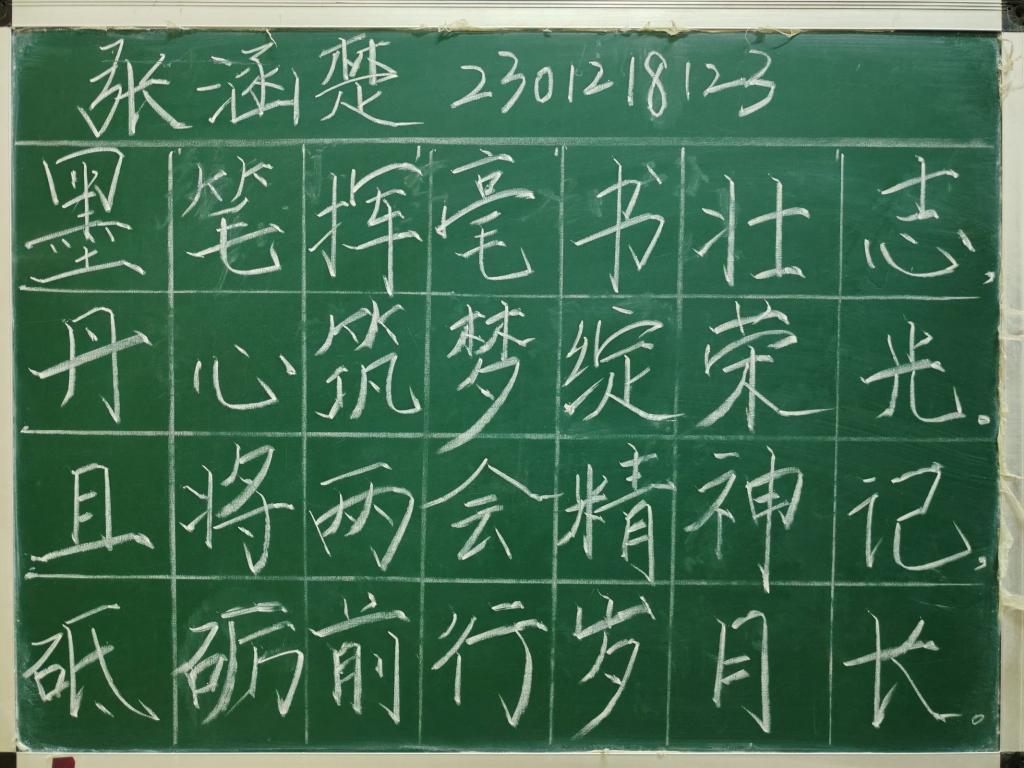 张涵楚 2301218123
墨笔挥毫书壮志,
丹心筑梦绽荣光.
且将两会精神记,
砥砺前行岁月长。